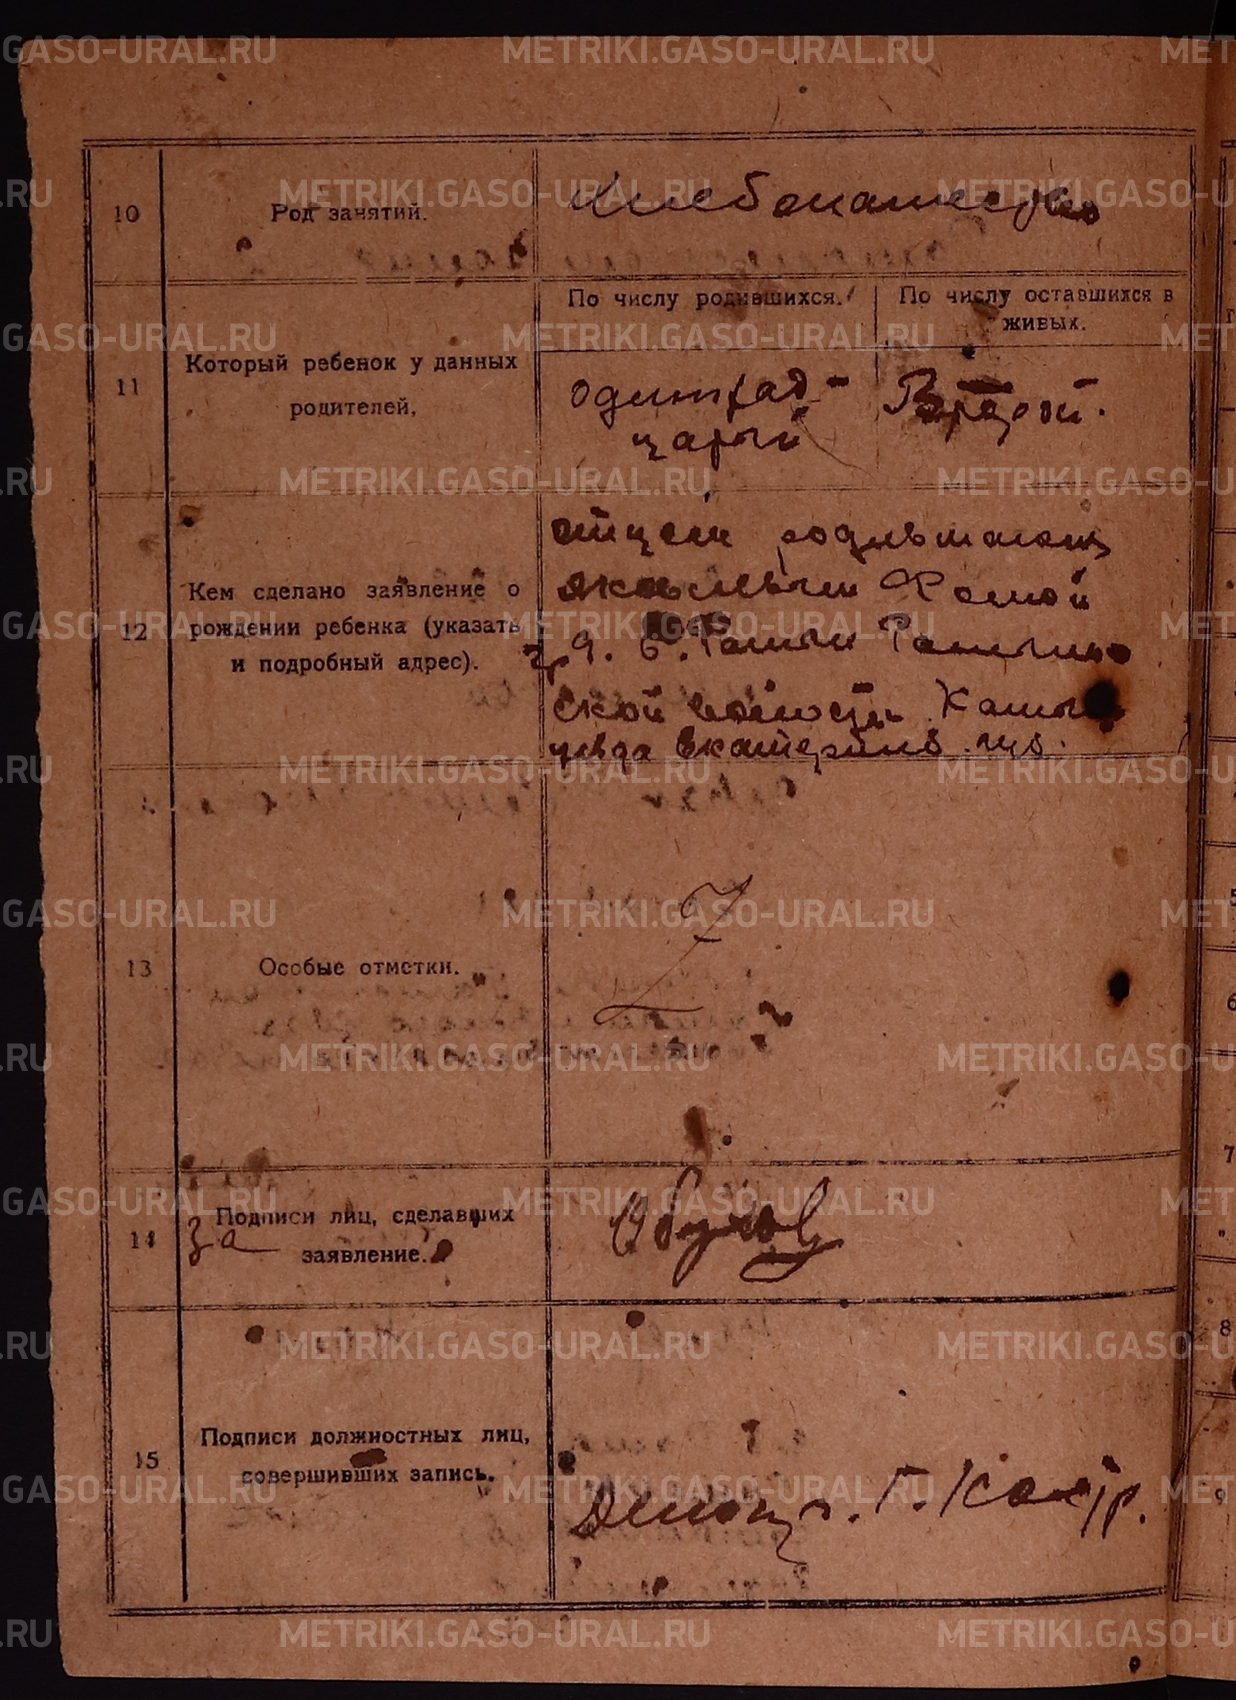 METRIKI.GASO-URAL.RU
10
Род занятий.
11
Который ребенок у данных
родителей.
По числу родившихся.
По числу оставшихся в
живых.
одинад-
цатый
12
Кем сделано заявление о
рождении ребенка (указать
и подробный адрес).
отцем родившагося
Фомой
гр д. Б.
ской волости Камыш
уезда Екатеринб. губ.
13
Особые отметки.
14
за
Подписи лиц, сделавших
заявление.
Обухов
15
Подписи должностных лиц,
совершивших запись.
Делопр. Г.